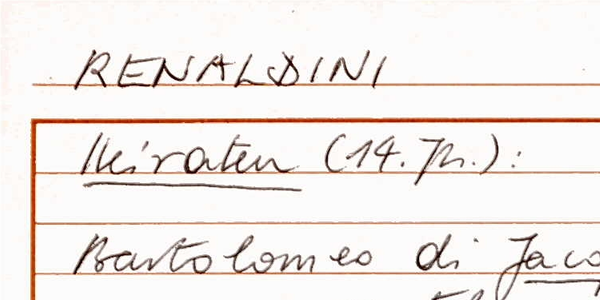 RENALDINI
Heiraten (14. Jh.):
Bartolomeo di Jaco